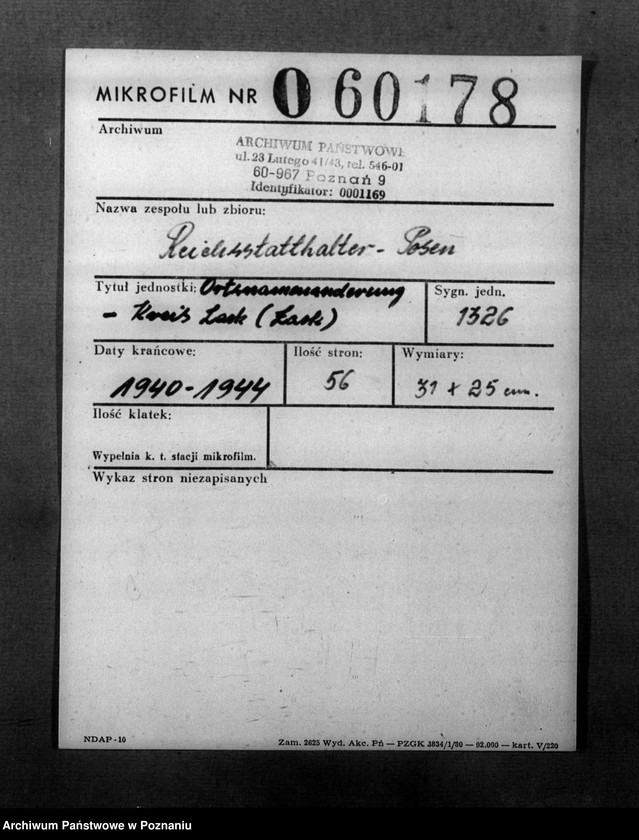 MIKROFILM NR 0 60178
Archiwum
ARCHIWUM PAŃSTWOWE
ul. 23 Lutego 41/43, tel. 546-01
60-967 Poznań 9
Identyfikator: 0001169
Nazwa zespołu lub zbioru:
Reichsstatthalter - Posen
Tytuł jednostki: Ortsnamenänderung
- Kreis Lask (Łask)
Sygn. jedn.
1326
Daty krańcowe:
1940-1944
Ilość stron:
56
Wymiary:
31 x 25 cm.
Ilość klatek:
Wypełnia k. t. stacji mikrofilm.
Wykaz stron niezapisanych
NDAP-10
Zam. 2625 Wyd. Akc. Pń — PZGK 3834/1/80 — 92.000 — kart. V/220
Archiwum Państwowe w Poznaniu